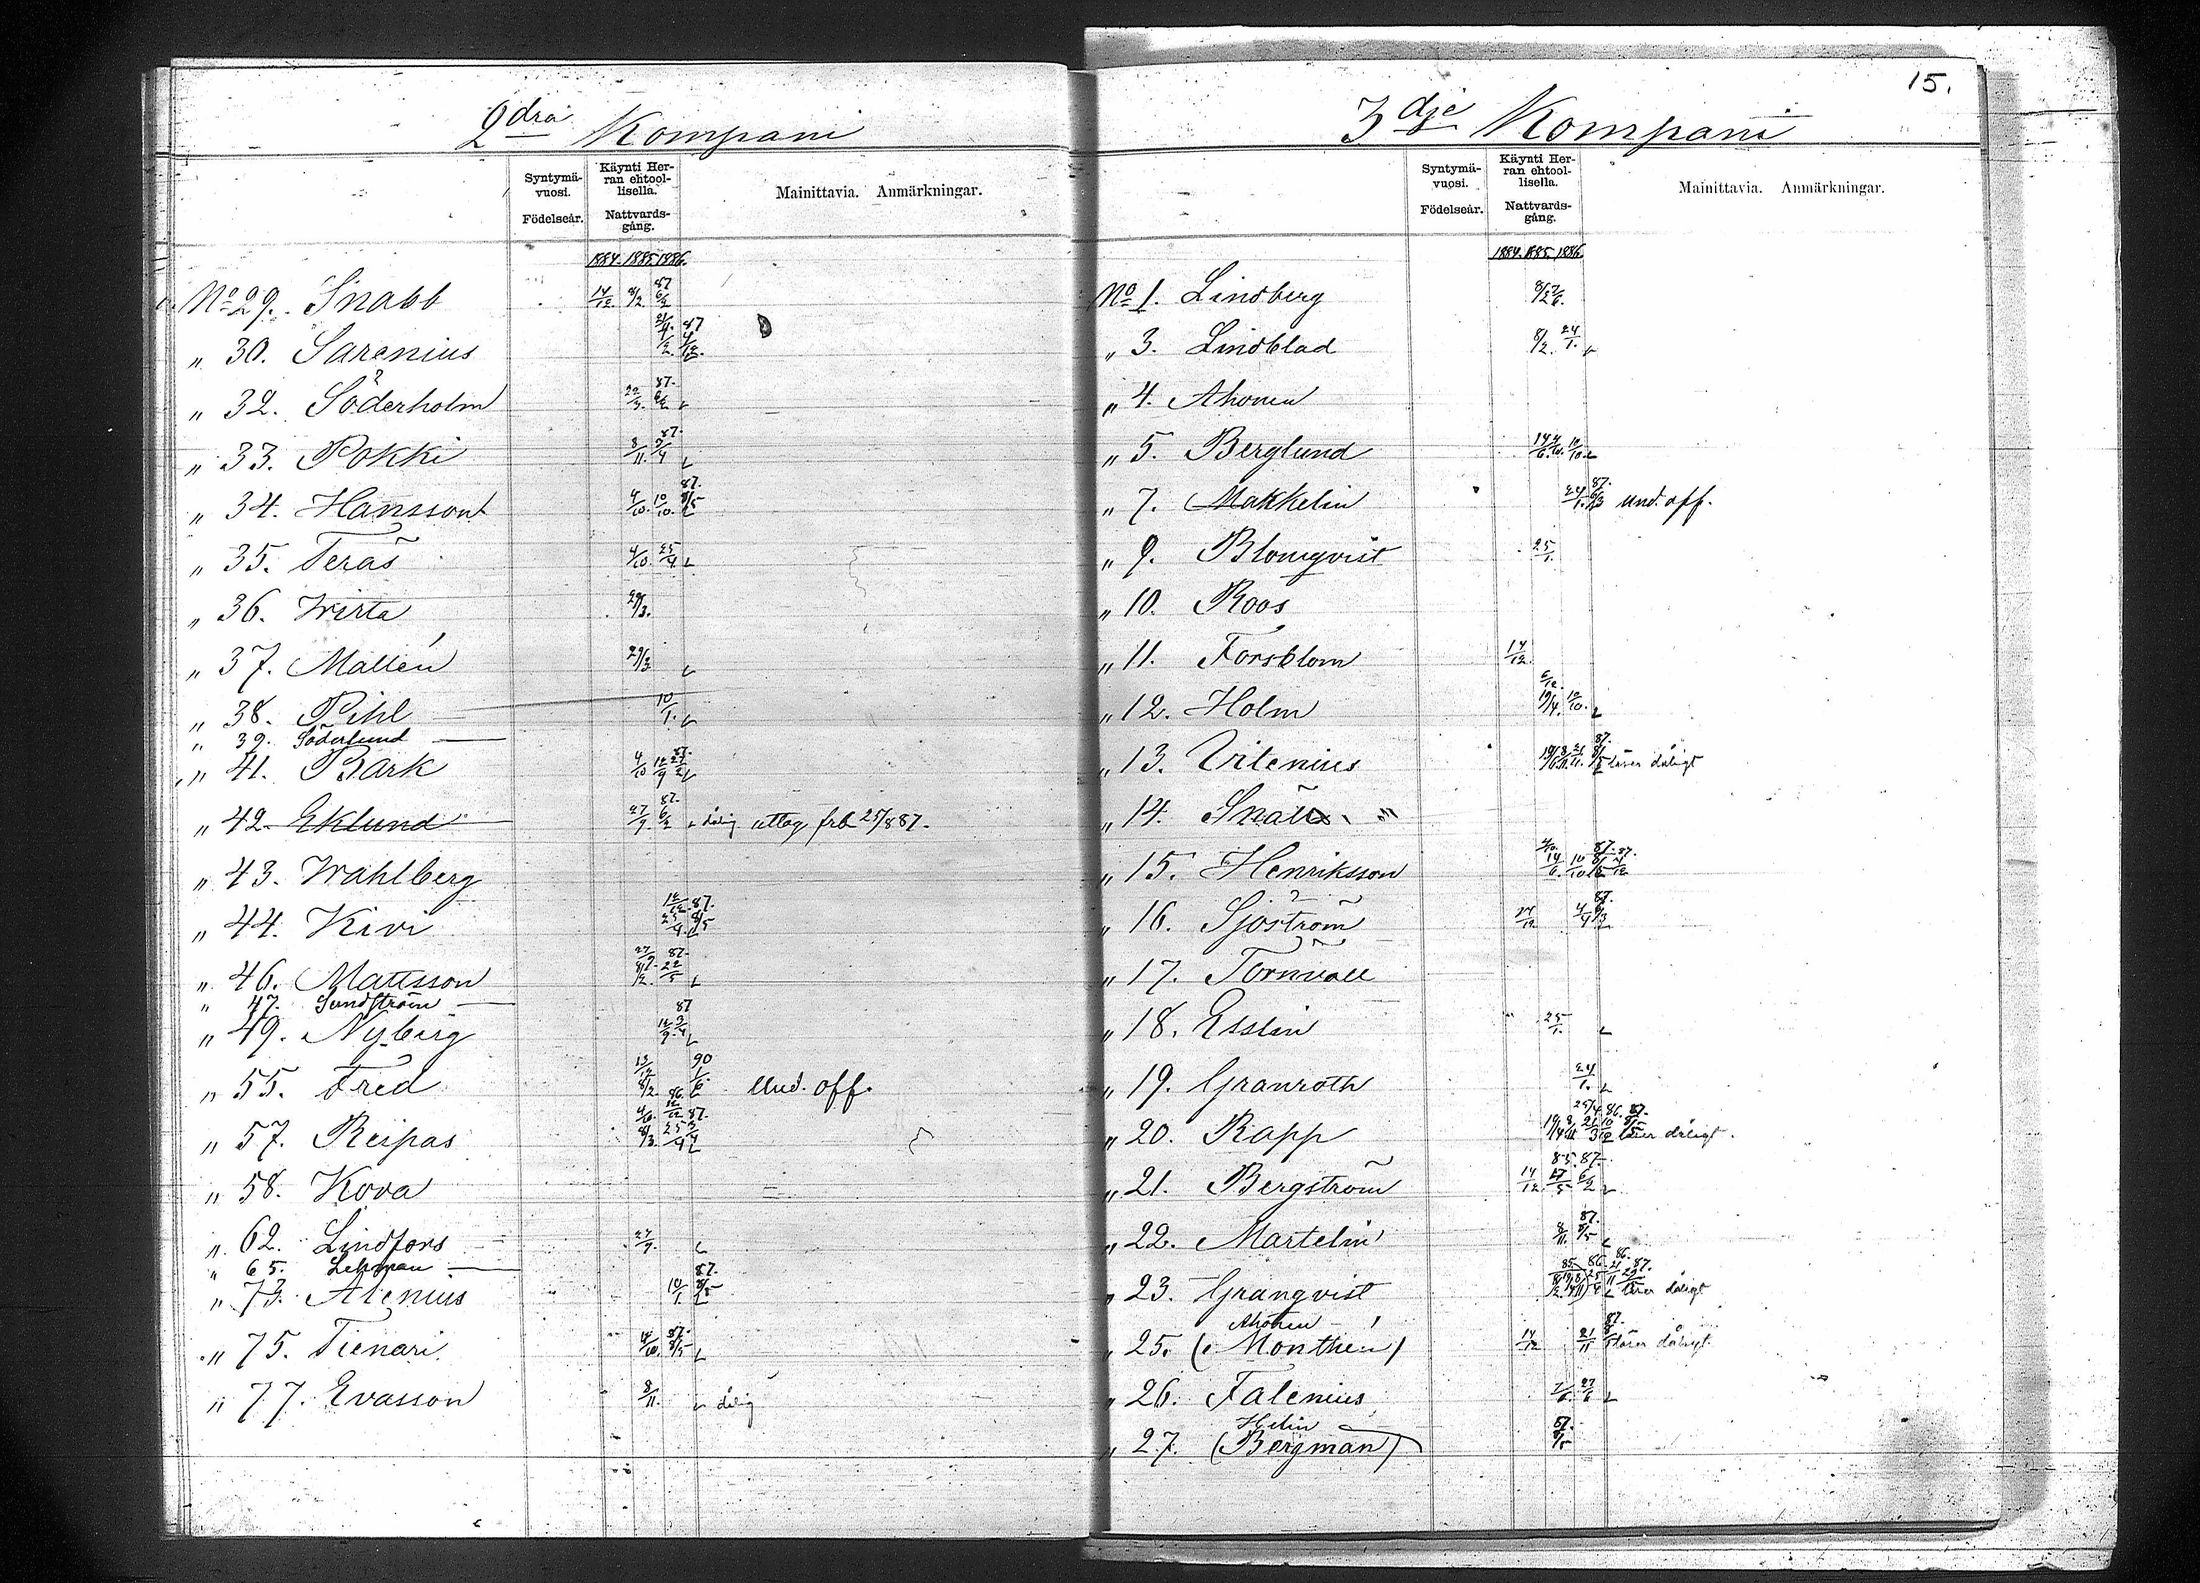 2dra Kompani
Syntymä-vuosi. Födelseår.
Käynti Herran ehtoollisella. Nattvardsgång.
Mainittavia. Anmärkningar.
1884. 1885. 1886.
No 29. Snabb 14/12. 8/2. 87 6/2
" 30. Sarenius
" 32. Söderholm
" 33. Pokki 8/11. 87.
" 34. Hansson 4/10. 10/10. 87. 8/5
" 35. Teräs 4/10. 25/4
" 36. Wirta 29/3.
" 37. Mallén 29/3
" 38. Pihl 10/1.
" 39. Söderlund
" 41. Bark 4/10 12/9
" 42. Eklund 27/9. 87. 6/2 dålig uttag frb 25/8 87.
" 43. Wahlberg
" 44. Kivi 25/4. 87. 8/5
" 46. Mattsson 27/9 8/2. 87. 22/5
" 47. Sundström
" 49. Nyberg 12/9. 87 3/4
" 55. Fred 13/12 8/2. 90 1/6. Und. off.
" 57. Reipas 8/3. 25/4 87.
" 58. Kova
" 62. Lindfors 27/9.
" 65. Lehman
" 73. Alenius 10/1. 87. 8/5
" 75. Tienari 4/10. 87. 8/5
" 77. Evasson 8/11. dålig
15.
3dje Kompani
Syntymä-vuosi. Födelseår.
Käynti Herran ehtoollisella. Nattvardsgång.
Mainittavia. Anmärkningar.
1884. 1885. 1886.
No 1. Lindberg 8/2
" 3. Lindblad 8/2. 24/1.
" 4. Ahonen
" 5. Berglund 14/6. 10/10.
" 7. Makkelin 24/1. 87. 6/3 und. off.
" 9. Blomqvist 25/1.
" 10. Roos
" 11. Forsblom 14/12.
" 12. Holm 19/4. 10/10.
" 13. Vitenius 87. läser dåligt
" 14. Snäll
" 15. Henriksson 14/6. 10/10 87. 87.
" 16. Sjöström 14/12 4/4 87.
" 17. Törnvall
" 18. Esslin 25/1.
" 19. Granroth 24/1.
" 20. Rapp 25/4 86. 87. läser dåligt.
" 21. Bergström 14/12. 85. 17/5 87. 6/2
" 22. Martelin 8/11. 87. 8/5
" 23. Granqvist 85. 86. 86. 87. läser dåligt
Ahonen
" 25. (Monthén) 14/12 21/11 87. läser dåligt
" 26. Falenius 7/6. 27/6
Helin
" 27. (Bergman) 87. 8/5